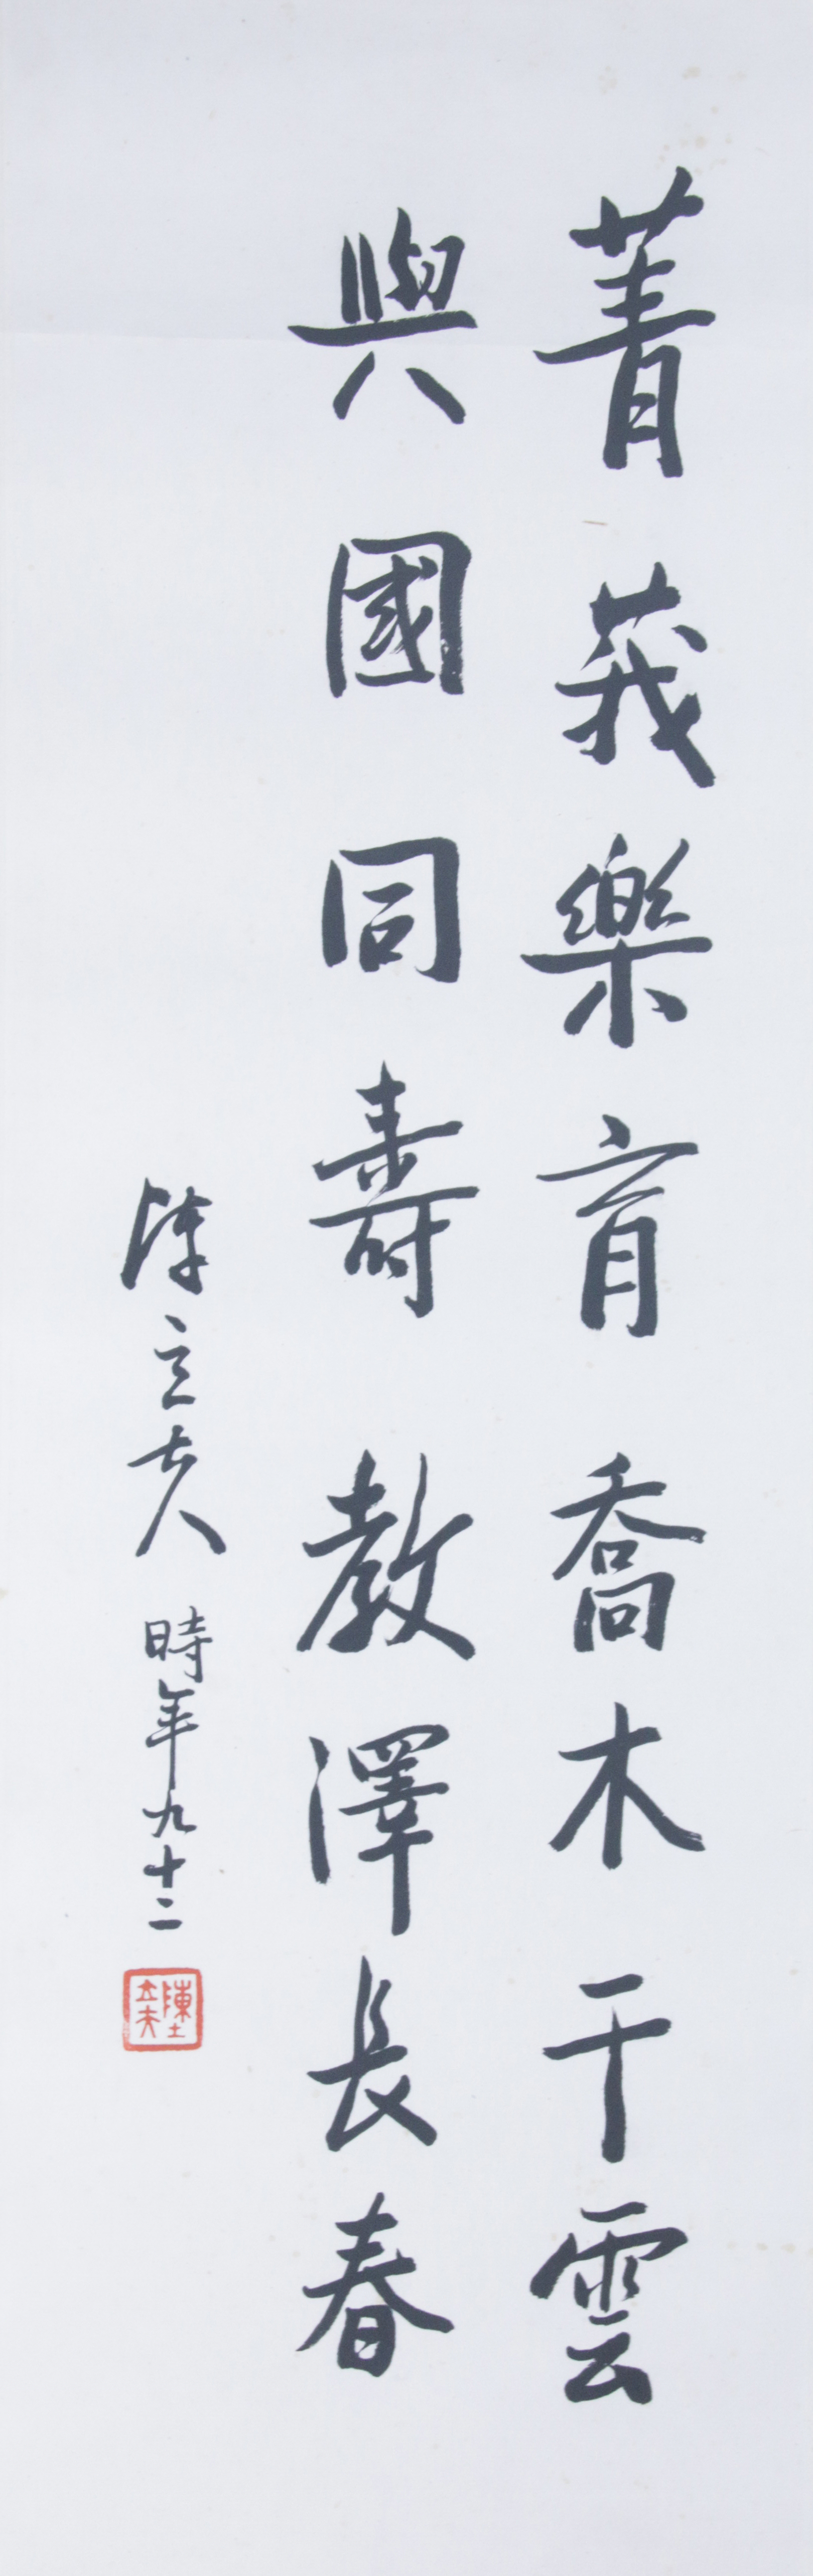 菁莪樂育喬木干雲
與國同壽教澤長春
陳立夫時年九十二
陳立夫